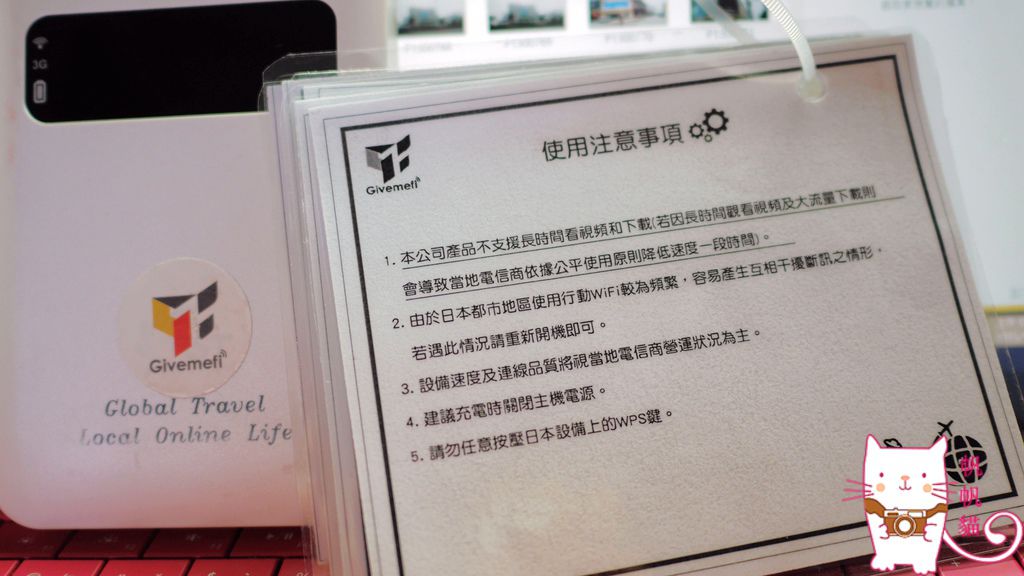 3G
Givemefi
Global Travel
Local Online Life
Givemefi
使用注意事項
1. 本公司產品不支援長時間看視頻和下載(若因長時間觀看視頻及大流量下載則
會導致當地電信商依據公平使用原則降低速度一段時間)。
2. 由於日本都市地區使用行動WiFi較為頻繁，容易產生互相干擾斷訊之情形，
若遇此情況請重新開機即可。
3. 設備速度及連線品質將視當地電信商營運狀況為主。
4. 建議充電時關閉主機電源。
5. 請勿任意按壓日本設備上的WPS鍵。
帆貓